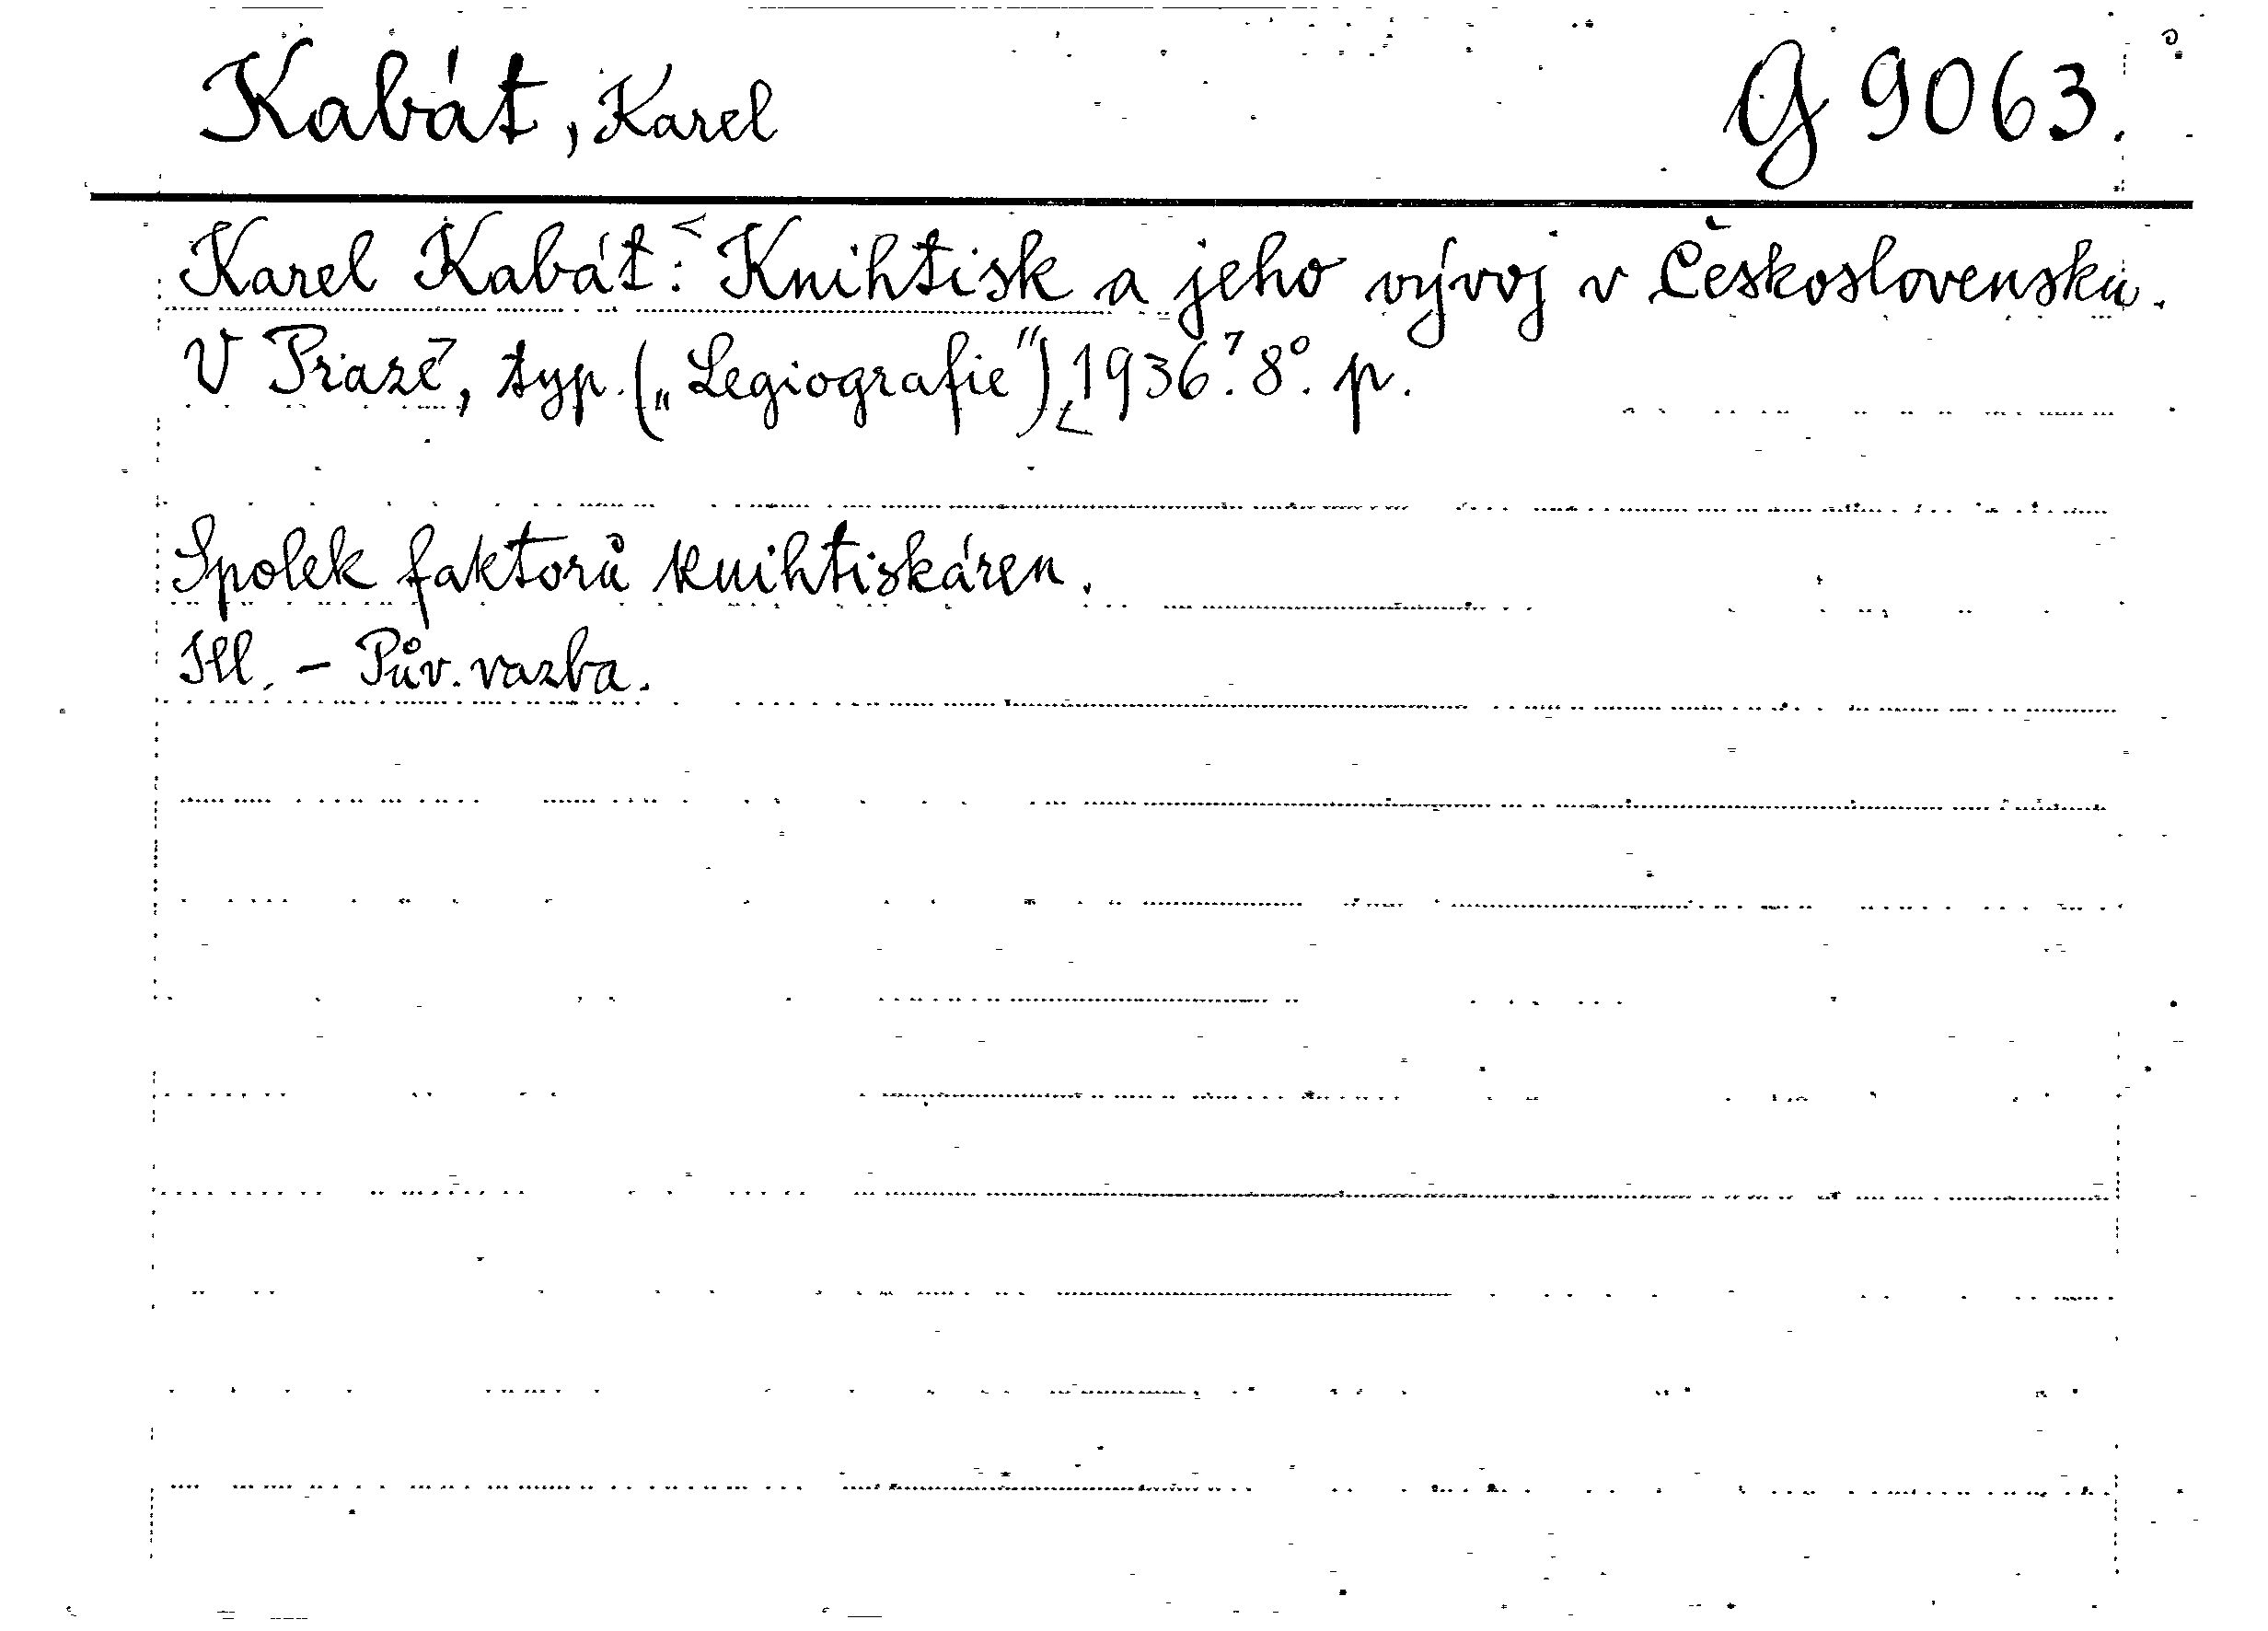 Kabát, Karel G 9063.
Karel Kabát: Knihtisk a jeho vývoj v Československu.
V Praze, typ. („Legiografie") [1936.] 8° p.
Spolek faktorů knihtiskáren.
Ill. - Pův. vazba.